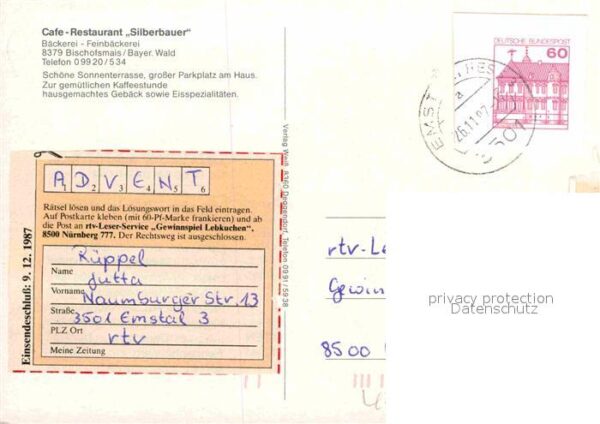 Cafe-Restaurant „Silberbauer"
Bäckerei - Feinbäckerei
8379 Bischofsmais/Bayer. Wald
Telefon 0 99 20 / 5 34
Schöne Sonnenterrasse, großer Parkplatz am Haus.
Zur gemütlichen Kaffeestunde
hausgemachtes Gebäck sowie Eisspezialitäten.
DEUTSCHE BUNDESPOST
60
26.11.87
3501
a
A D V E N T
1 2 3 4 5 6
Rätsel lösen und das Lösungswort in das Feld eintragen.
Auf Postkarte kleben (mit 60-Pf-Marke frankieren) und ab
die Post an rtv-Leser-Service „Gewinnspiel Lebkuchen",
8500 Nürnberg 777. Der Rechtsweg ist ausgeschlossen.
Rüppel
Name
Jutta
Vorname
Naumburger Str. 13
Straße
3501 Emstal 3
PLZ Ort
rtv
Meine Zeitung
Einsendeschluß: 9. 12. 1987
8360 Deggendorf, Telefon 09 91 / 59 38
rtv-Le
Gewin
8500
privacy protection
Datenschutz